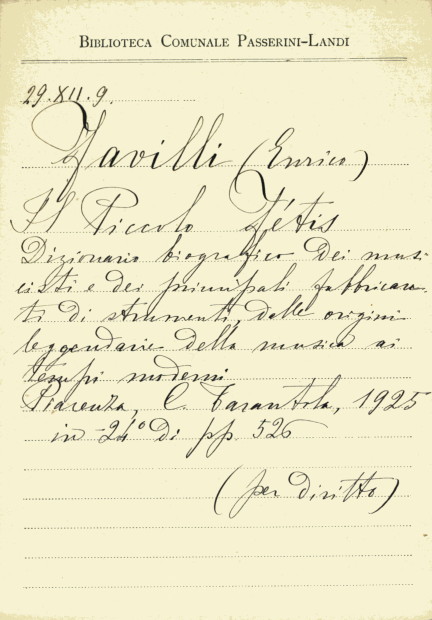 BIBLIOTECA COMUNALE PASSERINI-LANDI
29.XII.9.
Favilli (Enrico)
Il Piccolo Fétis
Dizionario biografico dei musi-
cisti e dei principali fabbrican-
ti di strumenti, dalle origini
leggendarie della musica ai
tempi moderni
Piacenza, C. Tarantola, 1925
in -24° di pp. 526
(per diritto)